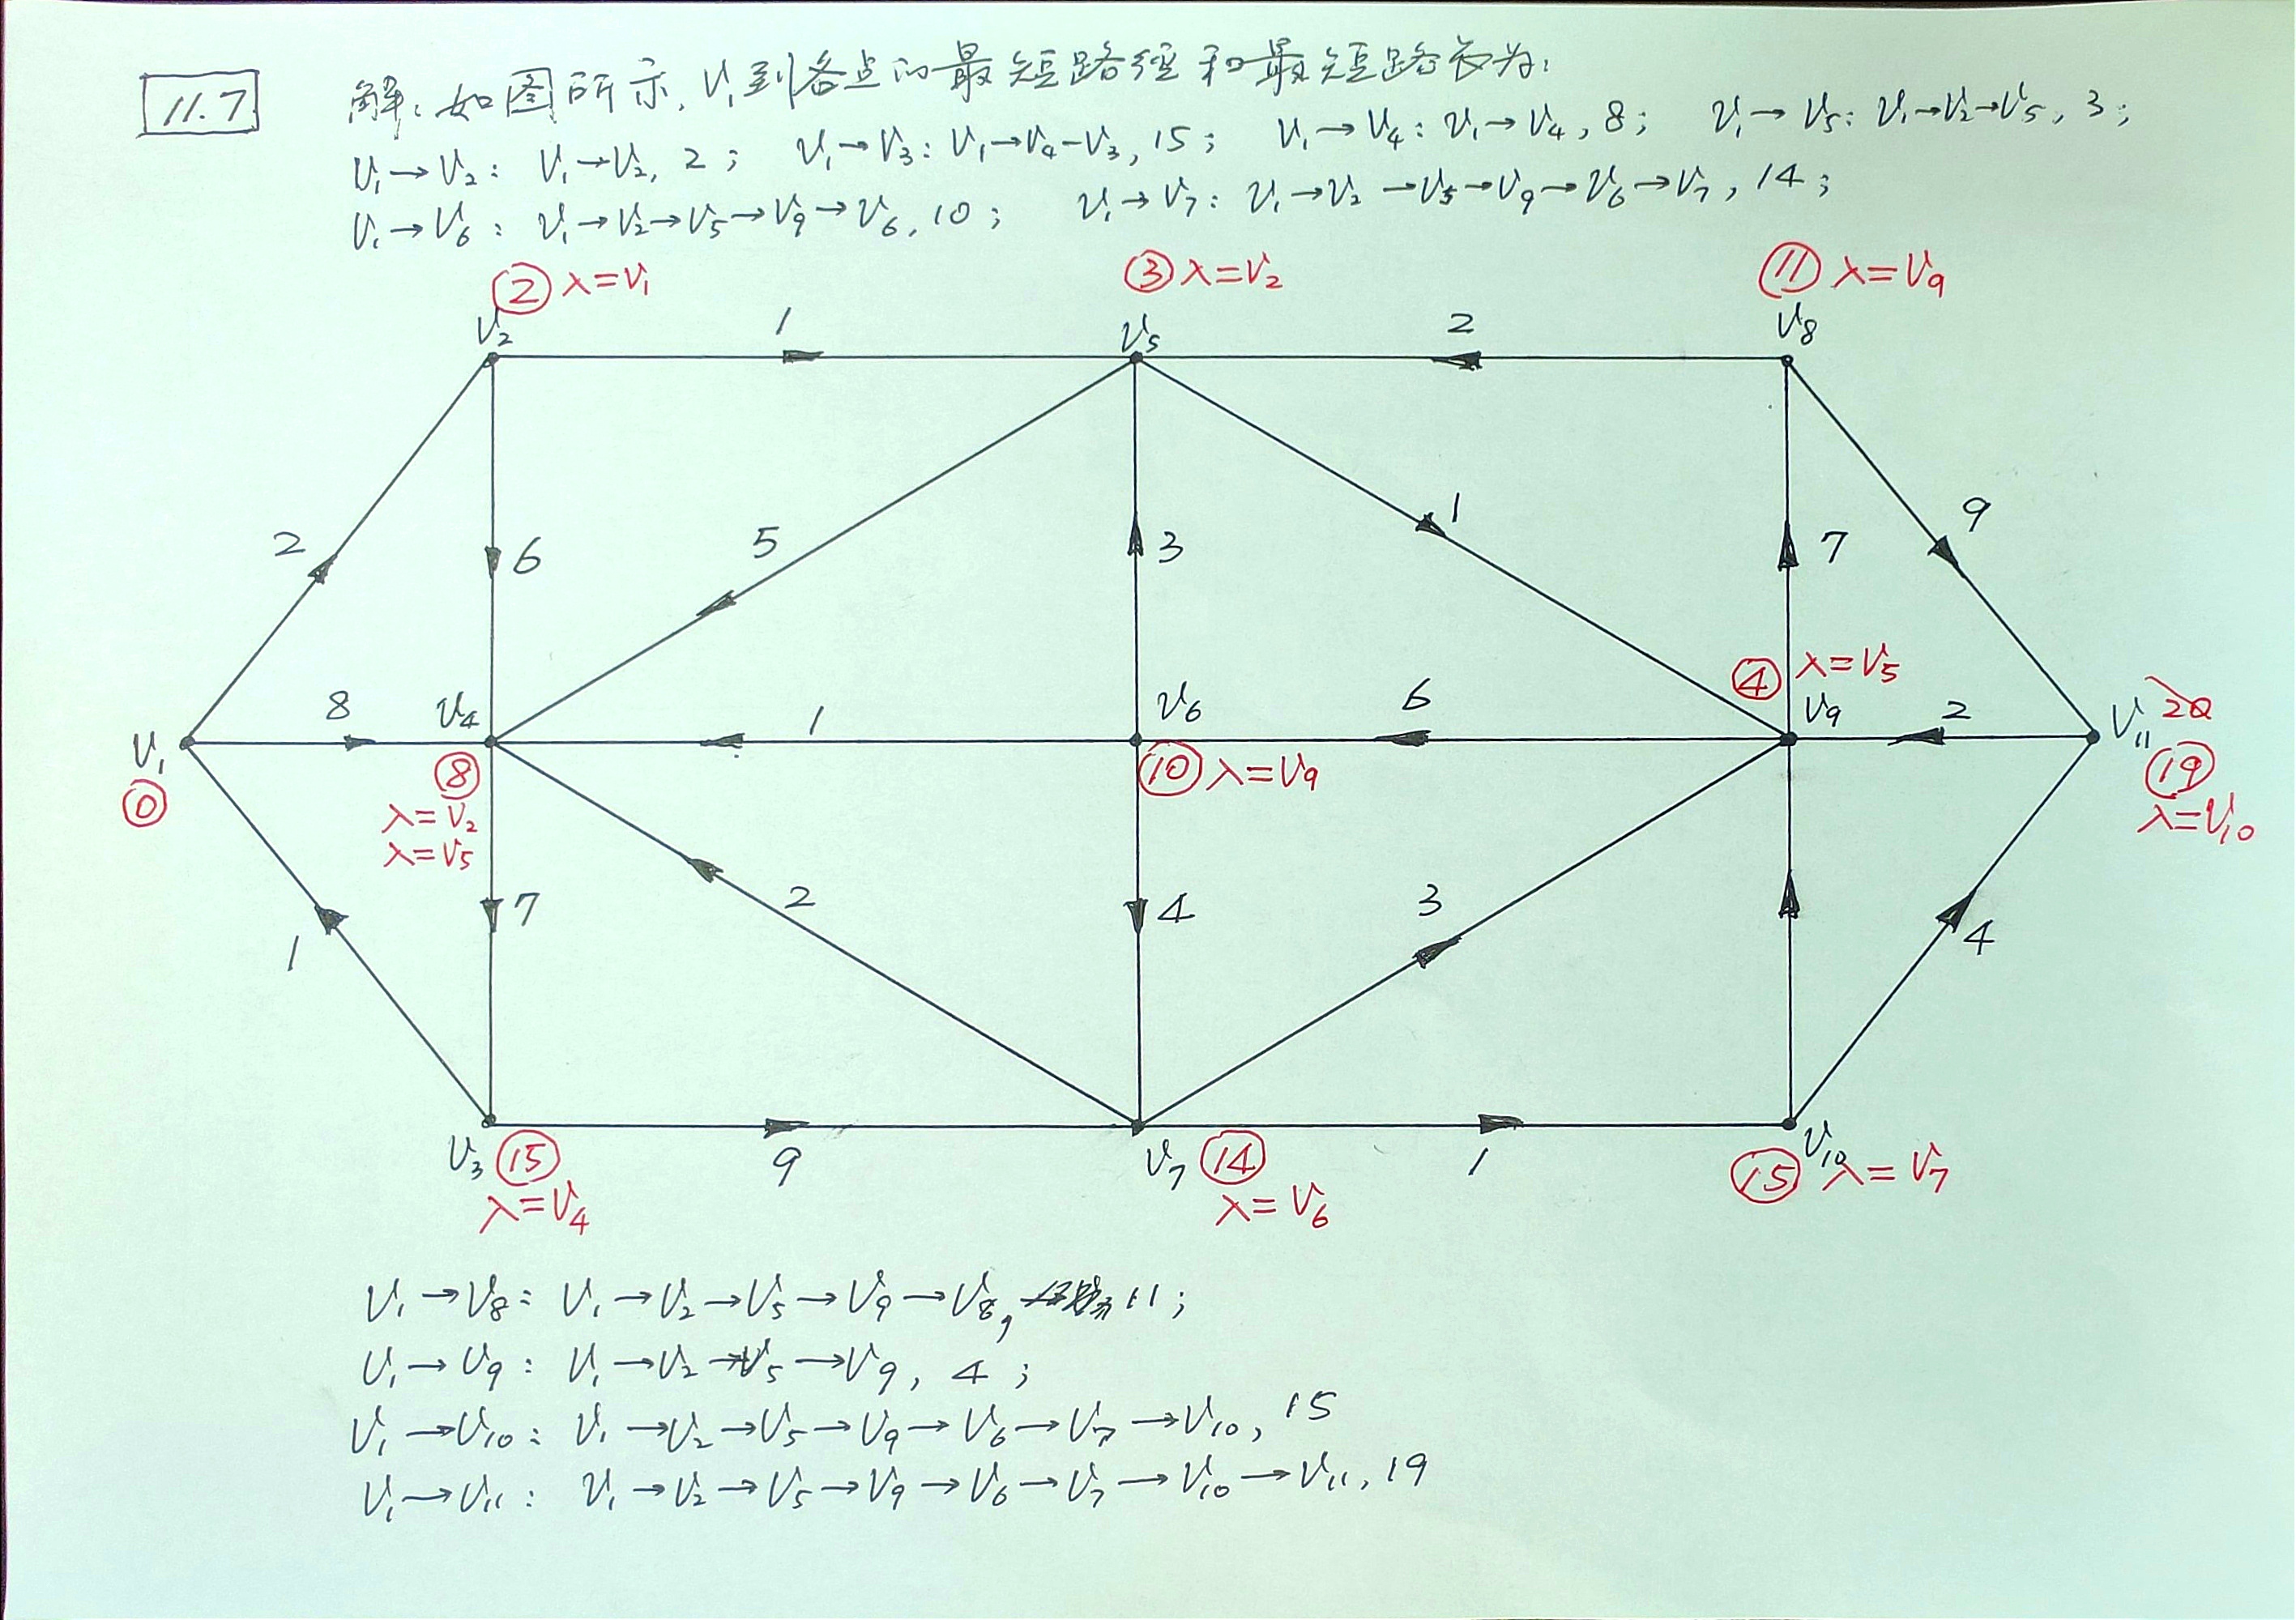 11.7
解：如图所示，V₁到各点的最短路径和最短路长为：
V₁→V₂：V₁→V₂, 2； V₁→V₃：V₁→V₄-V₃, 15； V₁→V₄：V₁→V₄, 8； V₁→V₅：V₁→V₂→V₅, 3；
V₁→V₆：V₁→V₂→V₅→V₉→V₆, 10； V₁→V₇：V₁→V₂→V₅→V₉→V₆→V₇, 14；
② λ=V₁
③ λ=V₂
⑪ λ=V₉
V₂
1
V₅
2
V₈
2
6
5
3
1
7
9
④ λ=V₅
8
V₄
1
V₆
6
V₉
2
V₁₁
20
V₁
⓪
⑧
λ=V₂
λ=V₅
⑩ λ=V₉
⑲
λ=V₁₀
1
7
2
4
3
4
V₃ ⑮
λ=V₄
9
V₇ ⑭
λ=V₆
1
V₁₀
⑮ λ=V₇
V₁→V₈：V₁→V₂→V₅→V₉→V₈, 11；
V₁→V₉：V₁→V₂→V₅→V₉, 4；
V₁→V₁₀：V₁→V₂→V₅→V₉→V₆→V₇→V₁₀, 15
V₁→V₁₁：V₁→V₂→V₅→V₉→V₆→V₇→V₁₀→V₁₁, 19